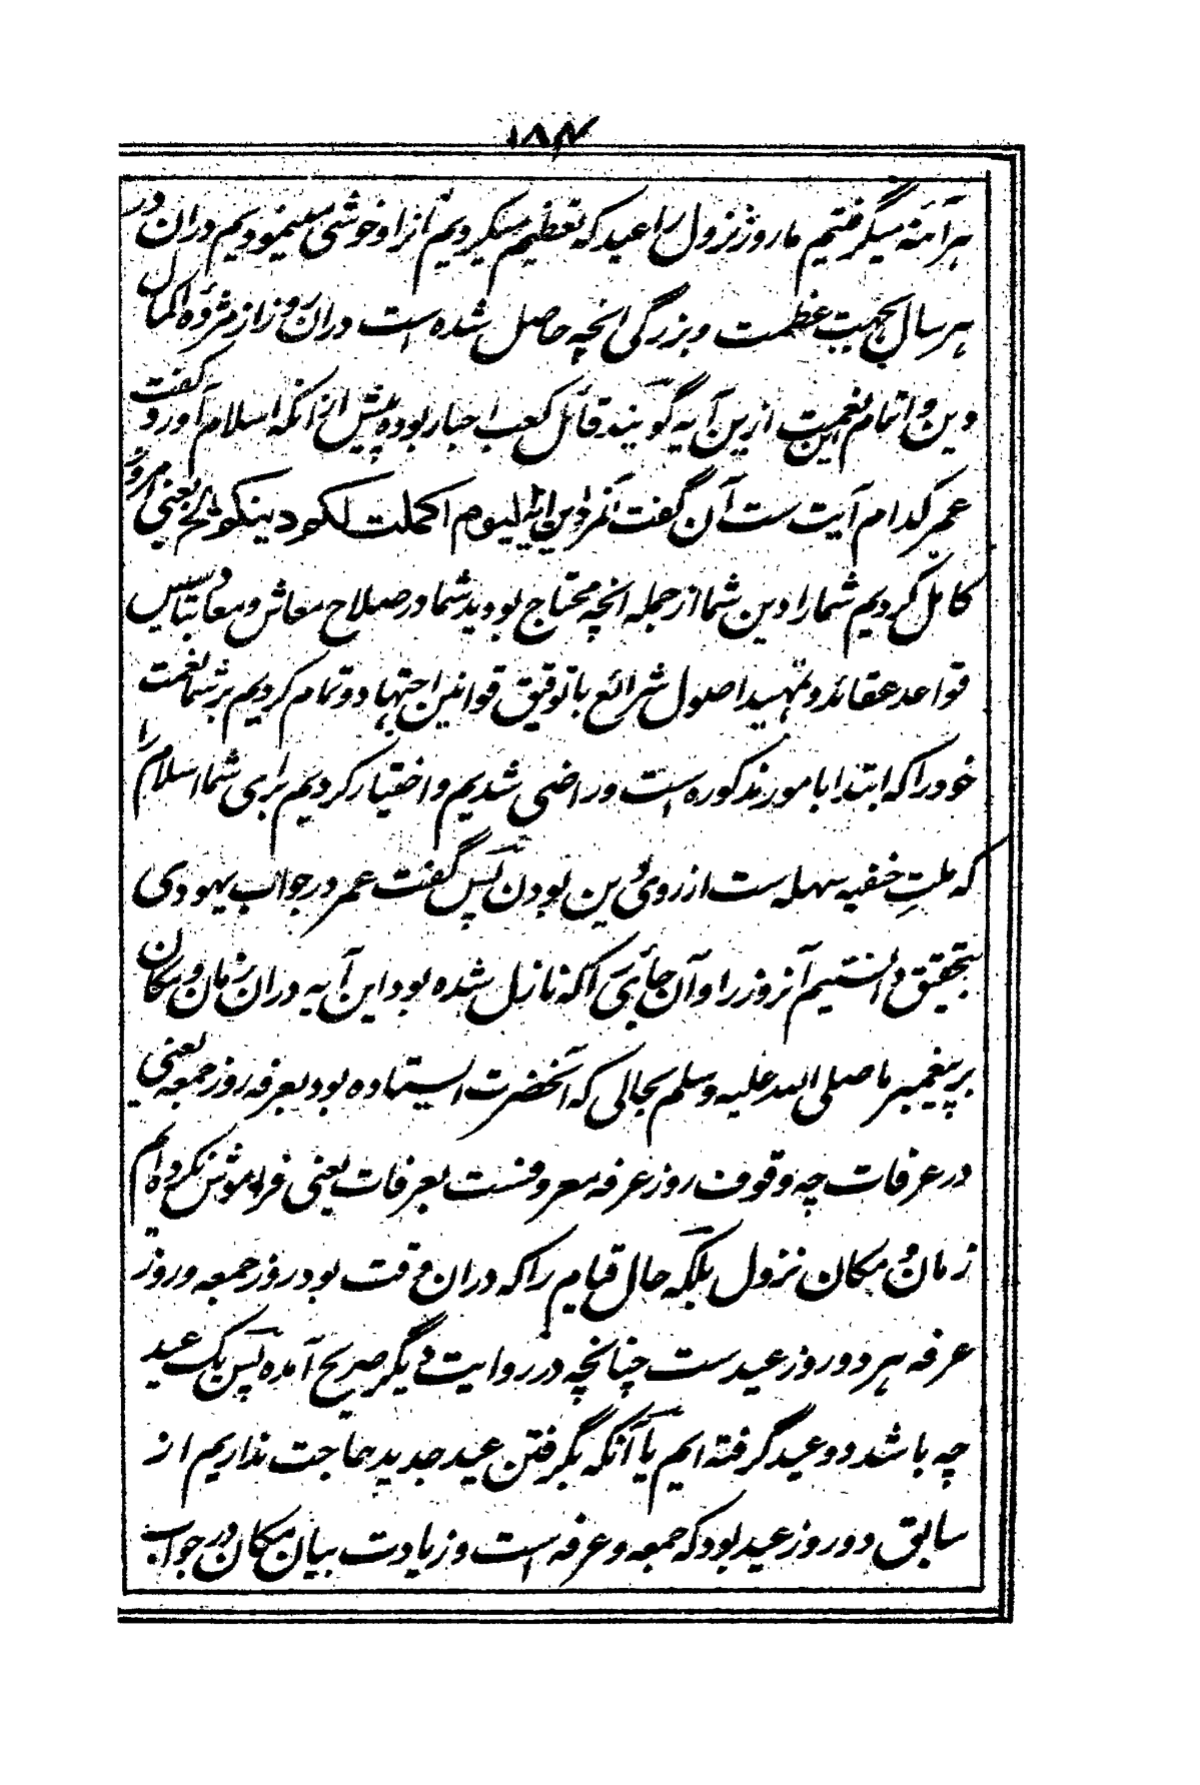 ۱۸۷
هرآئنه میگرفتیم ما روز نزول را عید که تعظیم میکردیم آنرا و خوشی مینمودیم دران در
هر سال بجهت عظمت و بزرگی انچه حاصل شده است دران روز از مژده اکمال
دین و اتمام نعمت ازین آیه گویند قائل کعب احبار بوده پیش از انکه اسلام آورد گفت
عمر کدام آیت ست آن گفت آنمرد این آیه الیوم اکملت لکم دینکم الخ یعنی امروز
کامل کردیم شما را دین شما از جمله انچه محتاج بودید شما در صلاح معاش و معاد بتاسیس
قواعد عقائد و تمهید اصول شرائع با توفیق قوانین اجتهاد و تمام کردیم بر شما نعمت
خود را که ابتدا بامور مذکوره است و راضی شدیم و اختیار کردیم برای شما اسلام را
که ملتِ حنفیه سهله ست از روی دین بودن پس گفت عمر در جواب یهودی
بتحقیق دانستیم آنروز را و آن جائی را که نازل شده بود این آیه دران زمان و مکان
بر پیغمبر ما صلی الله علیه وسلم بحالی که آنحضرت ایستاده بود بعرفه روز جمعه یعنی
در عرفات چه وقوف روز عرفه معروفست بعرفات یعنی فراموش نکرده ایم
زمان و مکان نزول بلکه حال قیام را که دران وقت بود روز جمعه و روز
عرفه هر دو روز عید ست چنانچه در روایت دیگر صریح آمده پس یک عید
چه باشد دو عید گرفته ایم یا آنکه بگرفتن عید جدید حاجت نداریم از
سابق دو روز عید بود که جمعه و عرفه است و زیادت بیان مکان در جواب